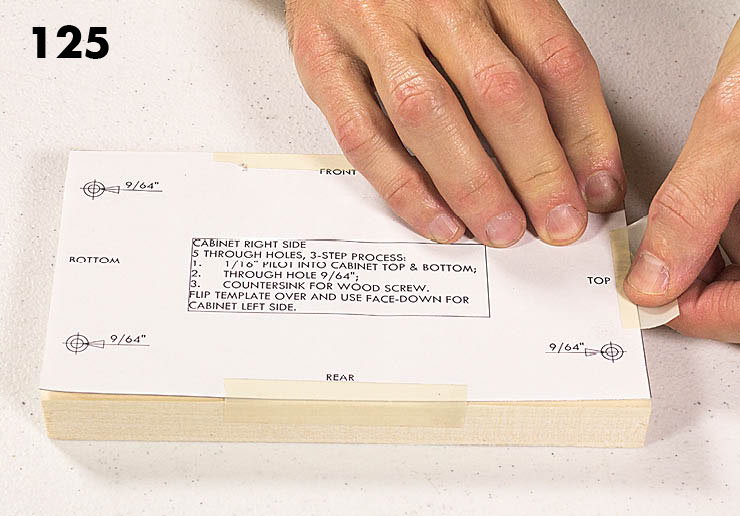 125
FRONT
9/64"
CABINET RIGHT SIDE
5 THROUGH HOLES, 3-STEP PROCESS:
1. 1/16" PILOT INTO CABINET TOP & BOTTOM;
2. THROUGH HOLE 9/64";
3. COUNTERSINK FOR WOOD SCREW.
FLIP TEMPLATE OVER AND USE FACE-DOWN FOR
CABINET LEFT SIDE.
BOTTOM
TOP
9/64"
9/64"
REAR